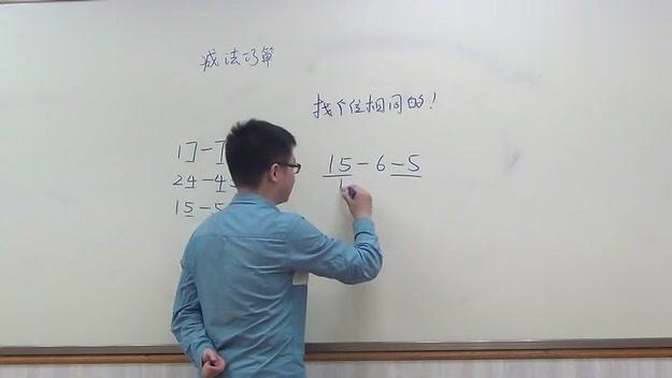 减法巧算
找个位相同的!
17-7
24-4
15-5
15-6-5
1